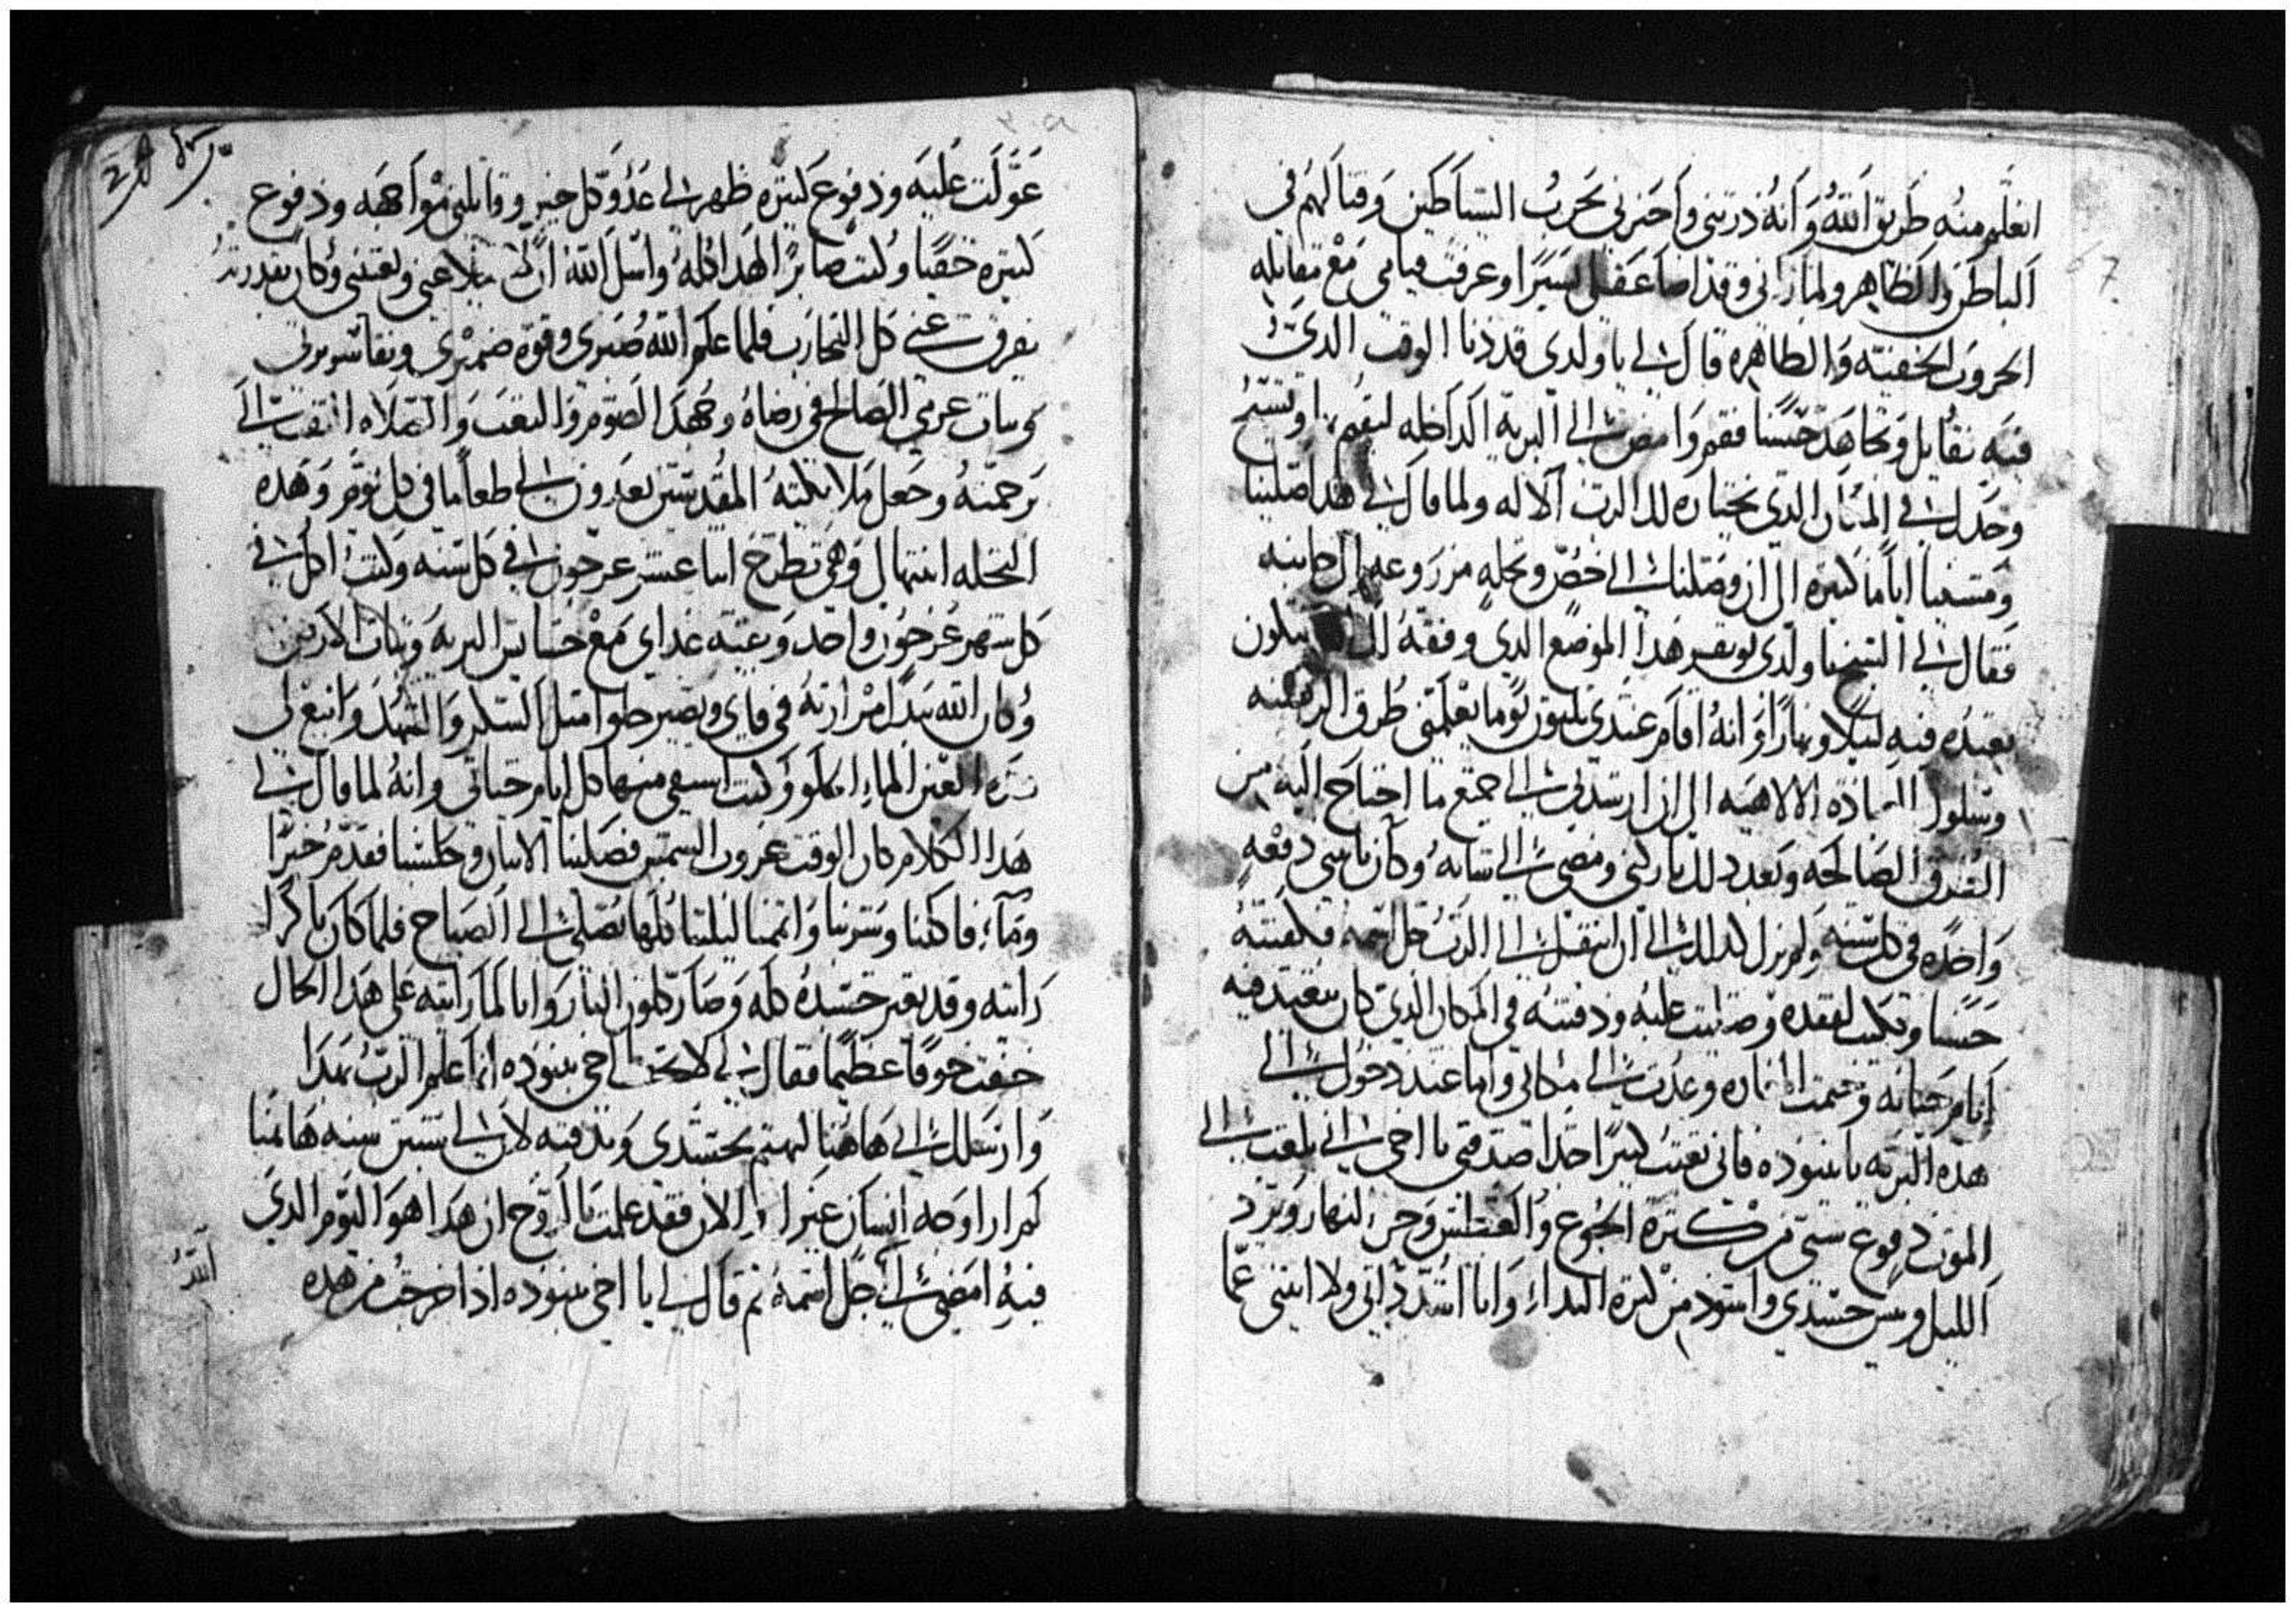 اتعلم منه طريق الله وانه دربني واخبرني بحرب الشياطين وقتالهم في
الباطن والظاهر ولما راني وقد اضا عقلي يسيرا وعرفت قيامي مع مقابله
الحروب الخفيه والظاهره قال لي يا ولدي قد دنا الوقت الدي
فيه تقاتل وتجاهد حسنا فقم وامضي الي البريه الداخله لتقيم
وحدك في المكان الدي يختاره لك الرب الاله ولما قال لي هدا صلينا
ومشينا اياما كتيره الي ان وصلنا الي خص ونخله مزروعه الي جانبه
فقال لي الشيخ يا ولدي هدا الموضع الدي وفقه لك تكون
تعبده فيه ليلا ونهارا وانه اقام عندي تلتون يوما يعلمني طرق الرهبنه
وسلوك العباده الالاهيه الي ان ارشدني الي جميع ما احتاج اليه من
الطرق الصالحه وبعد دلك باركني ومضي الي شانه وكان ياتيني دفعه
واحده في كل سنه ولم يزل كدلك الي ان انتقل الي الرب جل اسمه فكفنته
حسنا وبكيت لفقده وصليت عليه ودفنته في المكان الدي كان يتعبد فيه
ايام حياته وعدت الي مكاني واما عند دخولي الي
هده البريه يا ببنوده فاني تعبت كتيرا جدا صدقني يا اخي اني بلغت الي
الموت دفوع ستي من كتره الجوع والعطش وحر النهار وبرد
الليل ويبس جسدي واسود من كتره البداء وانا اشدد داتي ولا انتني عما
عولت عليه ودفوع كتيره ظهر لي عدو كل خير وقاتلني مواجهه ودفوع
كتيره خفيا وكنت صابرا لهدا كله واسل الله ان يلاعني ويعينني وكان بقدرته
يفرق عني كل التجارب فلما علم الله صبري وقوة ضميري
وتبات عزمي الصالح في رضاه وجهد الصوم والتعب والصلاه التفت الي
برحمته وجعل ملايكته المقدسين يعدون لي طعاما في كل يوم وهده
النخله وهي تطرح اتنا عشر عرجون في كل سنه وكنت اكل في
كل شهر عرجون واحد وعنيه غداي مع حشايش البريه ونبات الارض
وكان الله يبدل مرارته في فاي ويصير حلوا متل السكر والشهد وانبع لي
هده العين الماء الحلو وكنت استقي منها كل ايام حياتي وانه لما قال لي
هدا الكلام كان الوقت غروب الشمس فصلينا الاتنان وجلسنا فقدم خبزا
وماء فاكلنا وشربنا واقمنا ليلتنا كلها نصلي الي الصباح فلما كان باكرا
رايته وقد تغير جسده كله وصار كلون النار وانا لما رايته علي هدا الحال
خفت خوفا عظيما فقال لي لا تخف يا اخي ببنوده انما علم الرب بهدا
وارسلك الي هاهنا لتهتم بجسدي وتدفنه لان لي ستين سنه هاهنا
لم ارا وجه انسان غير الي الان فقد علمت بالروح ان هدا هو اليوم الدي
فيه امضي الي جل اسمه تم قال لي يا اخي ببنوده ادا خرجت من هده